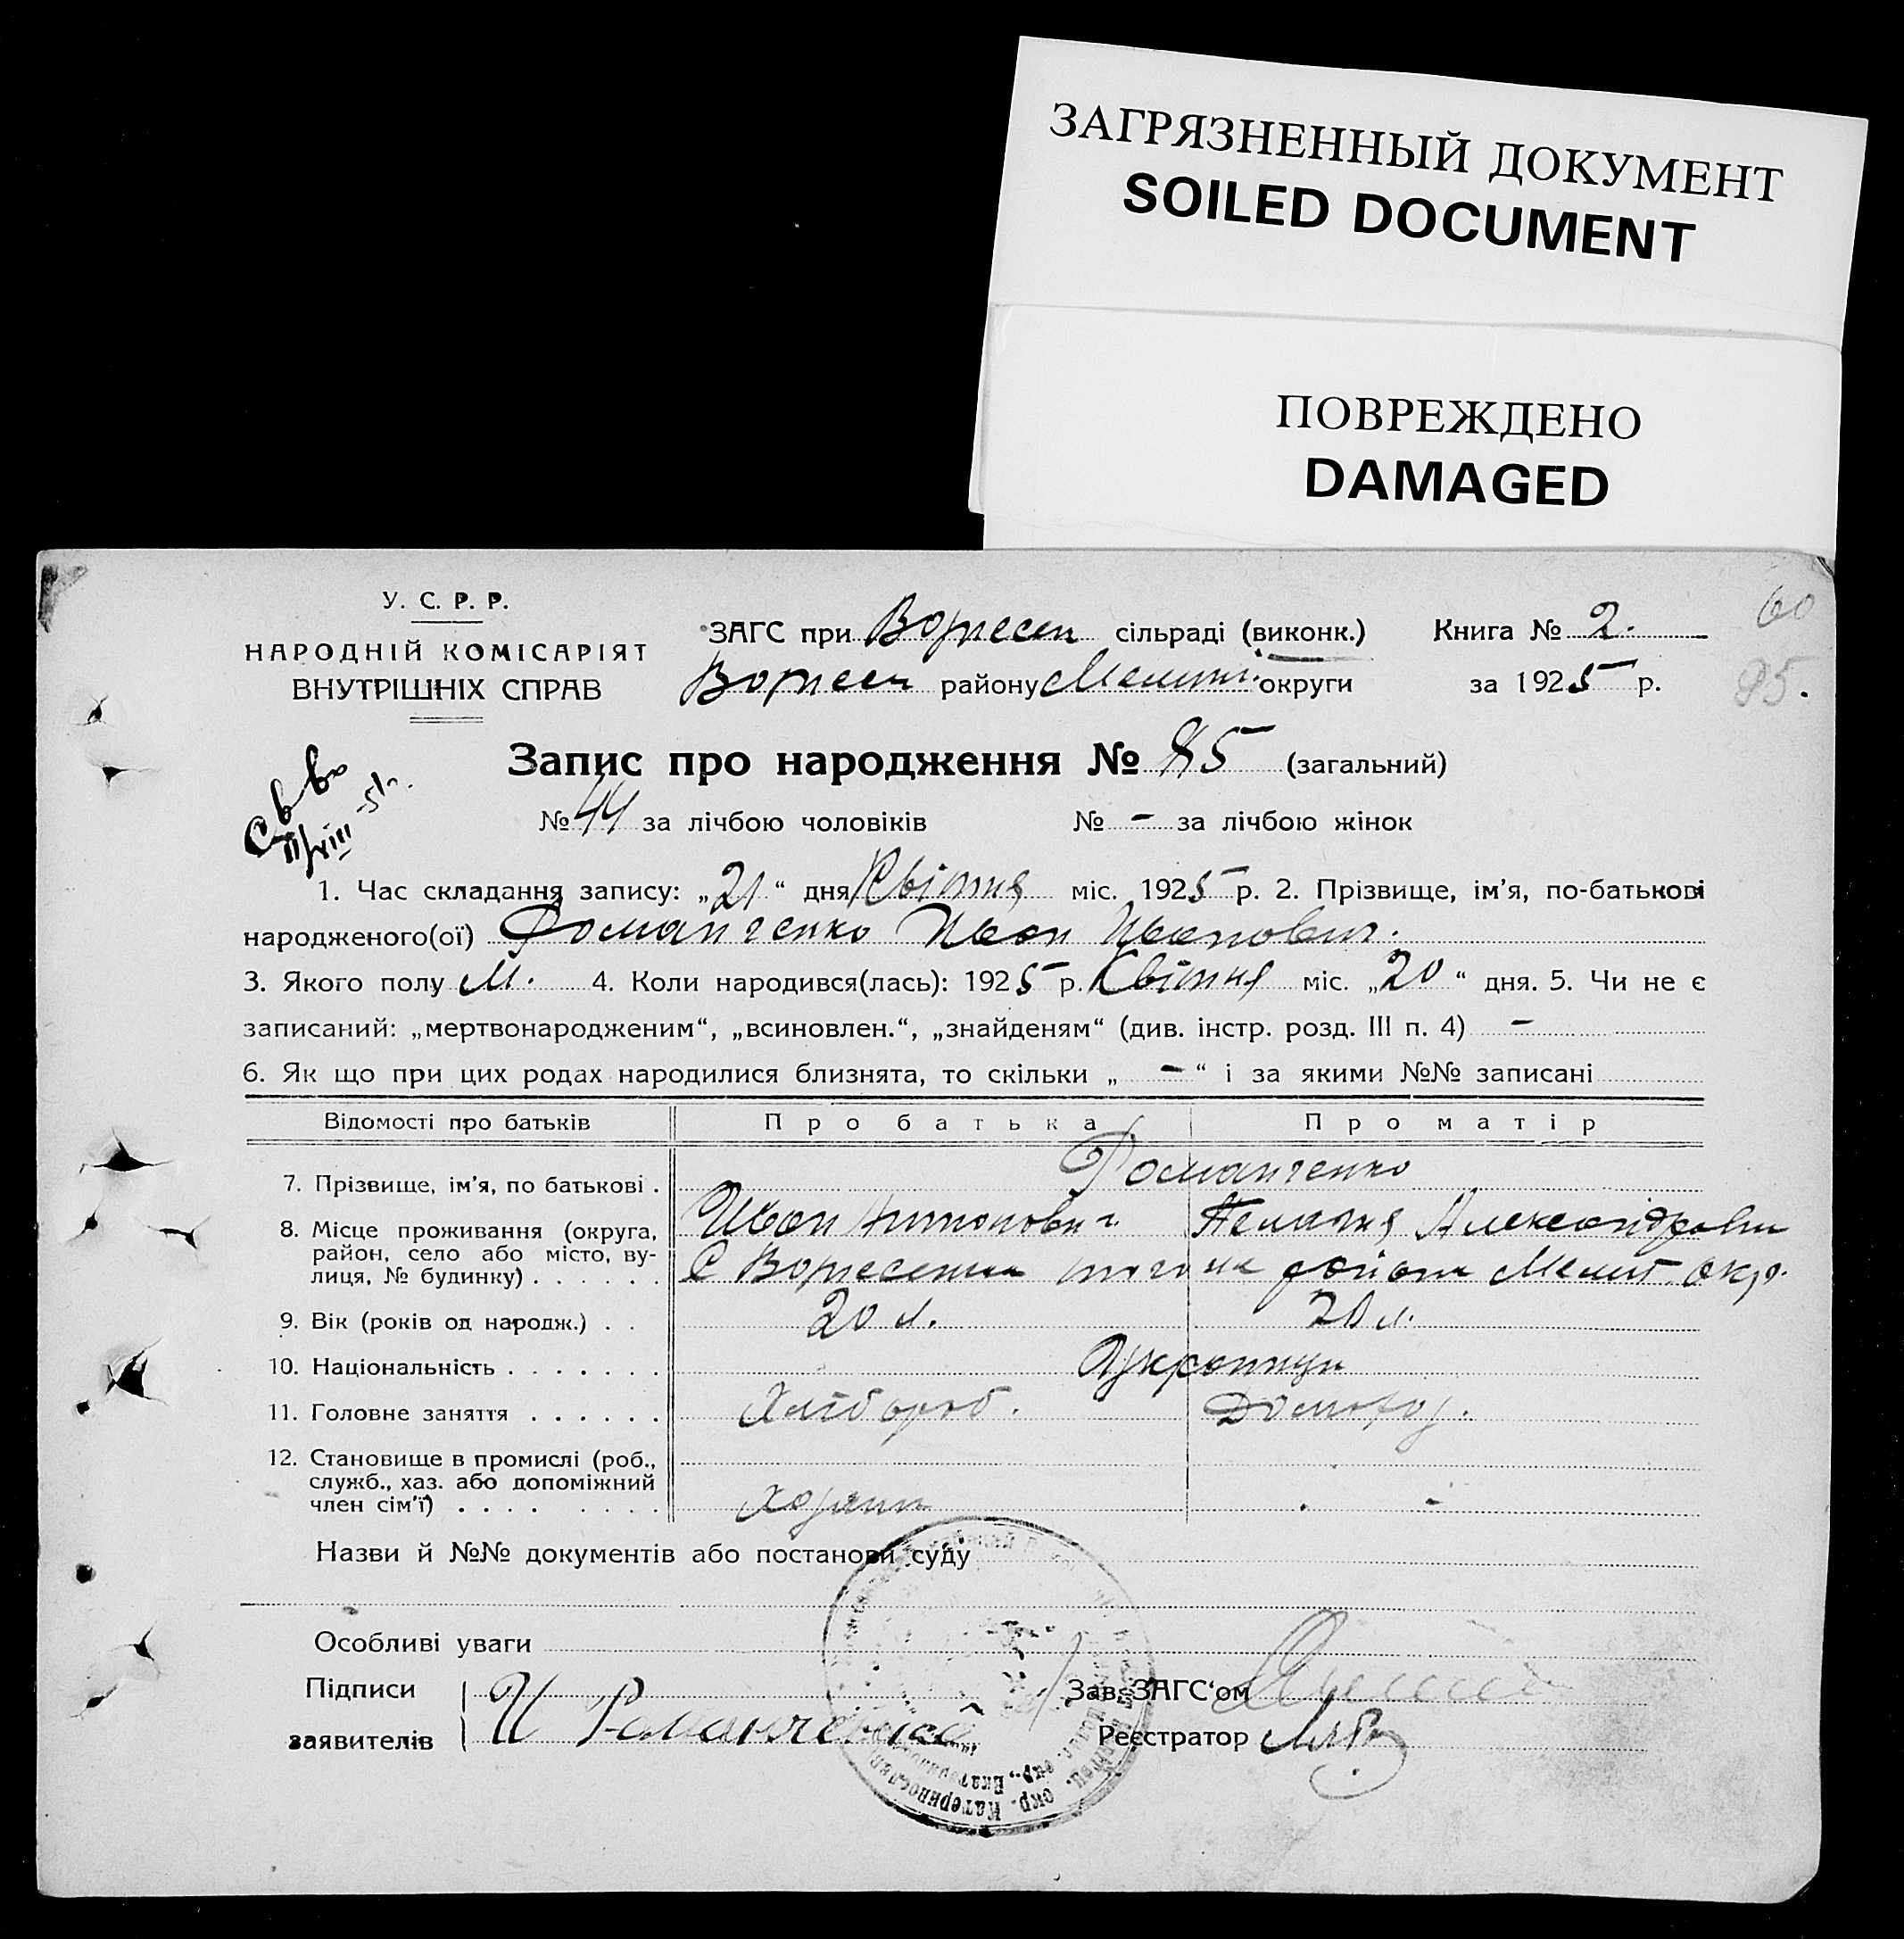 ЗАГРЯЗНЕННЫЙ ДОКУМЕНТ
SOILED DOCUMENT
ПОВРЕЖДЕНО
DAMAGED
60
85.
У. С. Р. Р.
НАРОДНІЙ КОМІСАРІЯТ
ВНУТРІШНІХ СПРАВ
ЗАГС при сільраді (виконк.) Книга № 2.
району Мелит. округи за 1925 р.
Запис про народження № 85 (загальний)
№ 44 за лічбою чоловіків № - за лічбою жінок
1. Час складання запису: „21“ дня Квітня міс. 1925 р. 2. Прізвище, ім'я, по-батькові
народженого(ої) Романченко Иван Иванович.
3. Якого полу М. 4. Коли народився(лась): 1925 р. Квітня міс. „20“ дня. 5. Чи не є
записаний: „мертвонародженим“, „всиновлен.“, „знайденям“ (див. інстр. розд. III п. 4) -
6. Як що при цих родах народилися близнята, то скільки „ - “ і за якими №№ записані
Відомості про батьків Про батька Про матір
7. Прізвище, ім'я, по батькові . Романченко
Иван Антонович
8. Місце проживання (округа,
район, село або місто, ву-
лиця, № будинку) . . . . . .
9. Вік (років од народж.) . . 20 л. 20 л.
10. Національність . . . . . . .
11. Головне заняття . . . . . . Хлібороб. Домогос.
12. Становище в промислі (роб.,
служб., хаз. або допоміжний
член сім'ї) . . . . . . . . Хозяин -
Назви й №№ документів або постанови суду
Особливі уваги
Підписи Зав. ЗАГС'ом
заявителів И Романченко Реєстратор